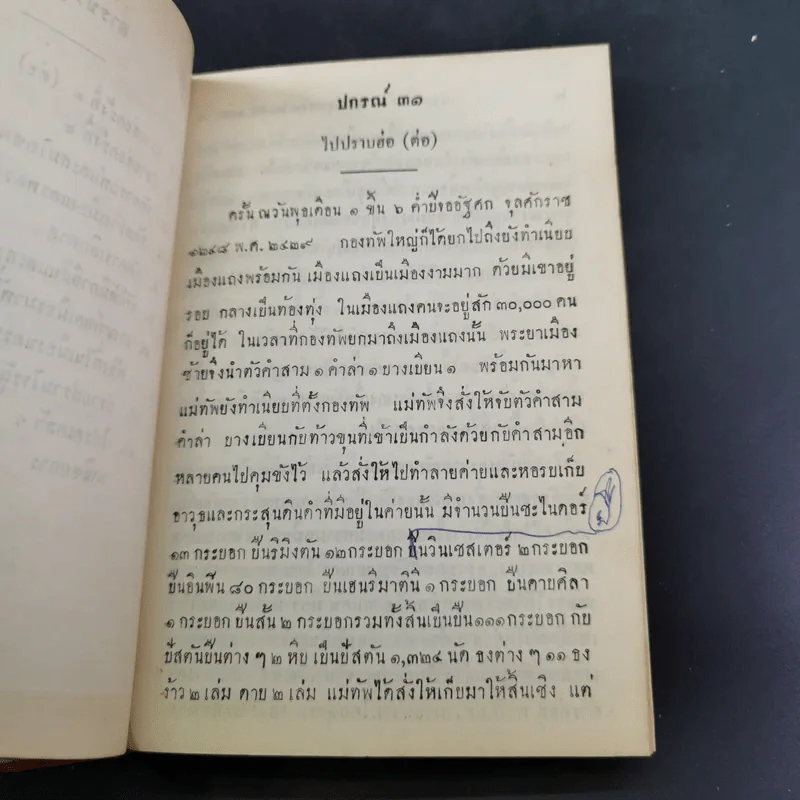 ปกรณ์ ๓๑
ไปปราบฮ่อ (ต่อ)
ครั้น ณวันพุธเดือน ๑ ขึ้น ๖ ค่ำปีจออัฐศก จุลศักราช
๑๒๔๘ พ.ศ. ๒๔๒๙ กองทัพใหญ่ก็ได้ยกไปถึงยังทำเนียบ
เมืองแถงพร้อมกัน เมืองแถงเป็นเมืองงามมาก ด้วยมีเขาอยู่
รอบ กลางเป็นท้องทุ่ง ในเมืองแถงคนจะอยู่สัก ๓๐,๐๐๐ คน
ก็อยู่ได้ ในเวลาที่กองทัพยกมาถึงเมืองแถงนั้น พระยาเมือง
ซ้ายจึงนำตัวคำสาม ๑ คำล่า ๑ บางเบียน ๑ พร้อมกันมาหา
แม่ทัพยังทำเนียบที่ตั้งกองทัพ แม่ทัพจึงสั่งให้จับตัวคำสาม
คำล่า บางเบียนกับท้าวขุนที่เข้าเป็นกำลังด้วยกับคำสามอีก
หลายคนไปคุมขังไว้ แล้วสั่งให้ไปทำลายค่ายและหอรบเก็บ
อาวุธและกระสุนดินดำที่มีอยู่ในค่ายนั้น มีจำนวนปืนซะไนดอร์
๑๓ กระบอก ปืนริมิงตัน ๑๒ กระบอก ปืนวินเชสเตอร์ ๒ กระบอก
ปืนอินฟิน ๘๐ กระบอก ปืนเฮนรีมาตินี ๑ กระบอก ปืนคาบศิลา
๑ กระบอก ปืนสั้น ๒ กระบอกรวมทั้งสิ้นเป็นปืน ๑๑๑ กระบอก กับ
ปัสตันปืนต่าง ๆ ๒ หีบ เป็นปัสตัน ๑,๓๒๔ นัด ธงต่าง ๆ ๑๑ ธง
ง้าว ๒ เล่ม ดาบ ๒ เล่ม แม่ทัพได้สั่งให้เก็บมาให้สิ้นเชิง แต่